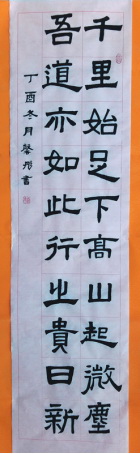 千里始足下高山起微塵
吾道亦如此行之貴日新
丁酉冬月馨彤書